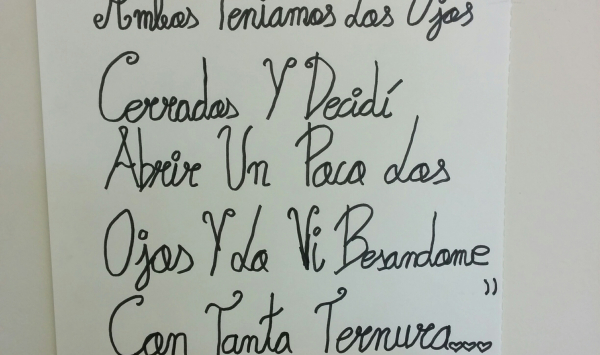 Ambos Teniamos los Ojos
Cerrados Y Decidí
Abrir Un Poco los
Ojos Y la Vi Besandome
Con Tanta Ternura... ”